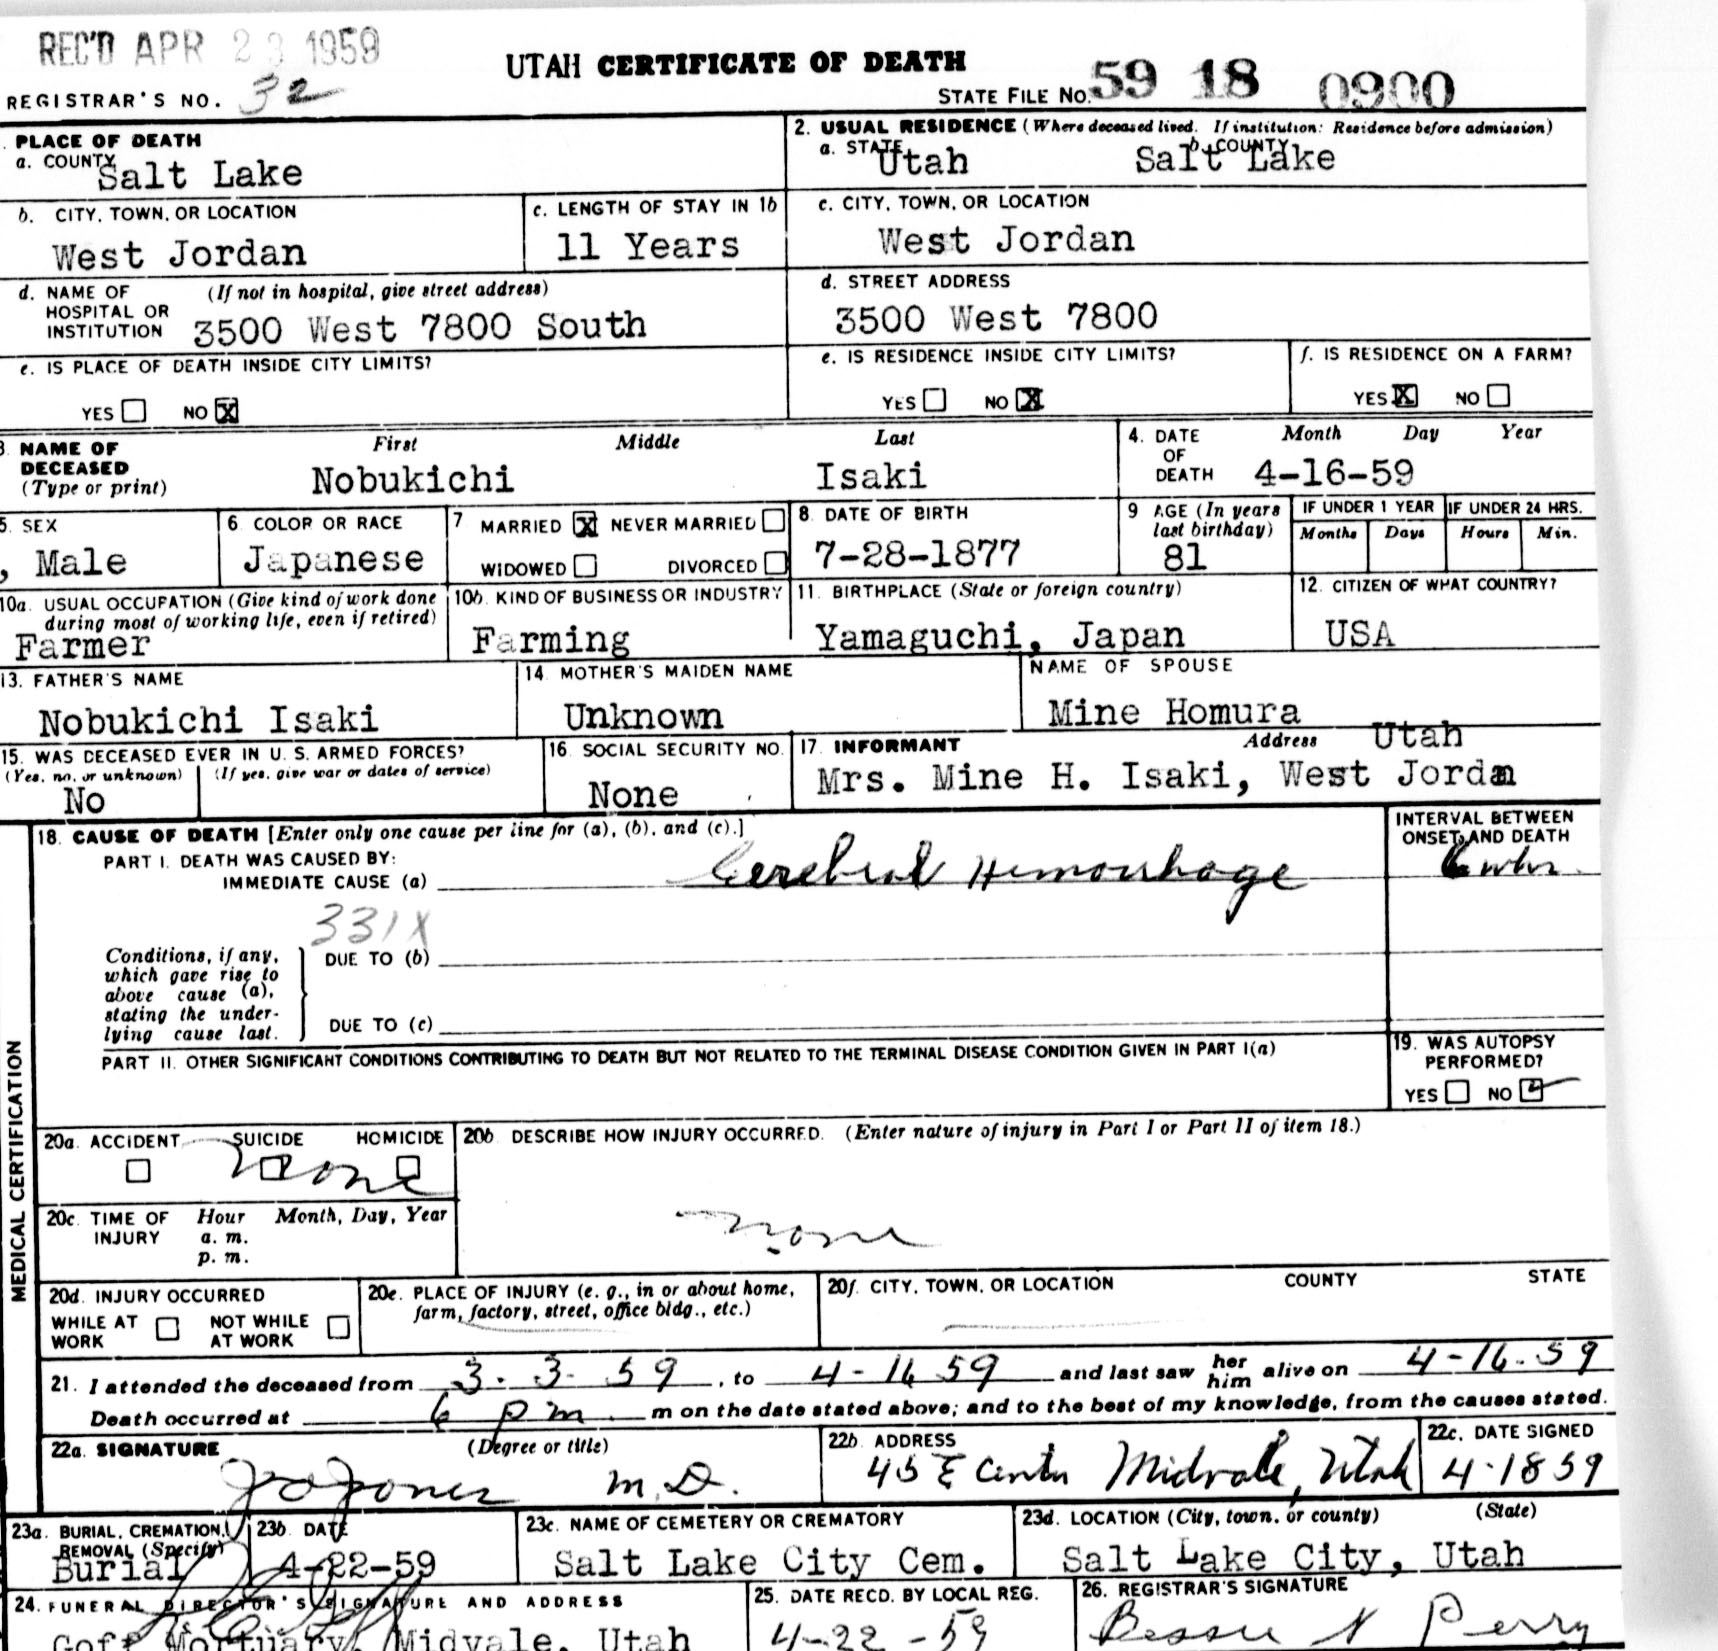 REC'D APR 23 1959
UTAH CERTIFICATE OF DEATH
REGISTRAR'S NO. 32
STATE FILE No. 59 18 0900
PLACE OF DEATH
a. COUNTY Salt Lake
2. USUAL RESIDENCE (Where deceased lived. If institution: Residence before admission)
a. STATE Utah b. COUNTY Salt Lake
b. CITY, TOWN, OR LOCATION
West Jordan
c. LENGTH OF STAY IN 1b
11 Years
c. CITY, TOWN, OR LOCATION
West Jordan
d. NAME OF HOSPITAL OR INSTITUTION (If not in hospital, give street address)
3500 West 7800 South
d. STREET ADDRESS
3500 West 7800
e. IS PLACE OF DEATH INSIDE CITY LIMITS?
YES NO X
e. IS RESIDENCE INSIDE CITY LIMITS?
YES NO X
f. IS RESIDENCE ON A FARM?
YES X NO
3. NAME OF DECEASED (Type or print)
First Middle Last
Nobukichi Isaki
4. DATE OF DEATH Month Day Year
4-16-59
5. SEX
, Male
6. COLOR OR RACE
Japanese
7. MARRIED X NEVER MARRIED
WIDOWED DIVORCED
8. DATE OF BIRTH
7-28-1877
9 AGE (In years last birthday)
81
IF UNDER 1 YEAR
Months Days
IF UNDER 24 HRS.
Hours Min.
10a. USUAL OCCUPATION (Give kind of work done during most of working life, even if retired)
Farmer
10b. KIND OF BUSINESS OR INDUSTRY
Farming
11. BIRTHPLACE (State or foreign country)
Yamaguchi, Japan
12. CITIZEN OF WHAT COUNTRY?
USA
13. FATHER'S NAME
Nobukichi Isaki
14. MOTHER'S MAIDEN NAME
Unknown
NAME OF SPOUSE
Mine Homura
15. WAS DECEASED EVER IN U. S. ARMED FORCES?
(Yes, no, or unknown) (If yes, give war or dates of service)
No
16. SOCIAL SECURITY NO.
None
17. INFORMANT Address Utah
Mrs. Mine H. Isaki, West Jordan
MEDICAL CERTIFICATION
18. CAUSE OF DEATH [Enter only one cause per line for (a), (b), and (c).]
PART I. DEATH WAS CAUSED BY:
IMMEDIATE CAUSE (a) Cerebral Hemorrhage
INTERVAL BETWEEN ONSET AND DEATH
331X
Conditions, if any, which gave rise to above cause (a), stating the underlying cause last.
DUE TO (b)
DUE TO (c)
PART II. OTHER SIGNIFICANT CONDITIONS CONTRIBUTING TO DEATH BUT NOT RELATED TO THE TERMINAL DISEASE CONDITION GIVEN IN PART I(a)
19. WAS AUTOPSY PERFORMED?
YES NO
20a. ACCIDENT SUICIDE HOMICIDE
None
20b. DESCRIBE HOW INJURY OCCURRED. (Enter nature of injury in Part I or Part II of item 18.)
None
20c. TIME OF INJURY Hour Month, Day, Year
a. m.
p. m.
20d. INJURY OCCURRED
WHILE AT WORK NOT WHILE AT WORK
20e. PLACE OF INJURY (e. g., in or about home, farm, factory, street, office bldg., etc.)
20f. CITY, TOWN, OR LOCATION COUNTY STATE
21. I attended the deceased from 3-3-59, to 4-16 59 and last saw her him alive on 4-16-59
Death occurred at 6 pm. m on the date stated above; and to the best of my knowledge, from the causes stated.
22a. SIGNATURE (Degree or title)
Jones M.D.
22b. ADDRESS
45 E Center Midvale, Utah
22c. DATE SIGNED
4-18 59
23a. BURIAL, CREMATION, REMOVAL (Specify)
Burial
23b. DATE
4-22-59
23c. NAME OF CEMETERY OR CREMATORY
Salt Lake City Cem.
23d. LOCATION (City, town, or county) (State)
Salt Lake City, Utah
24. FUNERAL DIRECTOR'S SIGNATURE AND ADDRESS
Goff Mortuary, Midvale, Utah
25. DATE RECD. BY LOCAL REG.
4-22-59
26. REGISTRAR'S SIGNATURE
Bessie N Perry